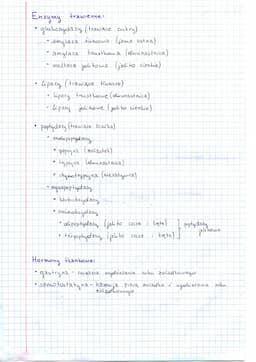 Enzymy trawienne:
• glukozydazy (trawiące cukry)
- amylaza ślinowa (jama ustna)
- amylaza trzustkowa (dwunastnica)
- maltaza jelitowa (jelito cienkie)
• lipazy (trawiące tłuszcze)
- lipazy trzustkowe (dwunastnica)
- lipazy jelitowe (jelito cienkie)
• peptydazy (trawiące białka)
- endopeptydazy
• pepsyna (żołądek)
• trypsyna (dwunastnica)
• chymotrypsyna (dwunastnica)
- egzopeptydazy
• karboksypeptydazy
• aminopeptydazy
• dipeptydazy (jelito czcze i kręte)
• tripeptydazy (jelito czcze i kręte) } peptydazy jelitowe
Hormony tkankowe:
• gastryna - zwiększa wydzielanie soku żołądkowego
• somatostatyna - hamuje pracę żołądka i wydzielanie soku
żołądkowego